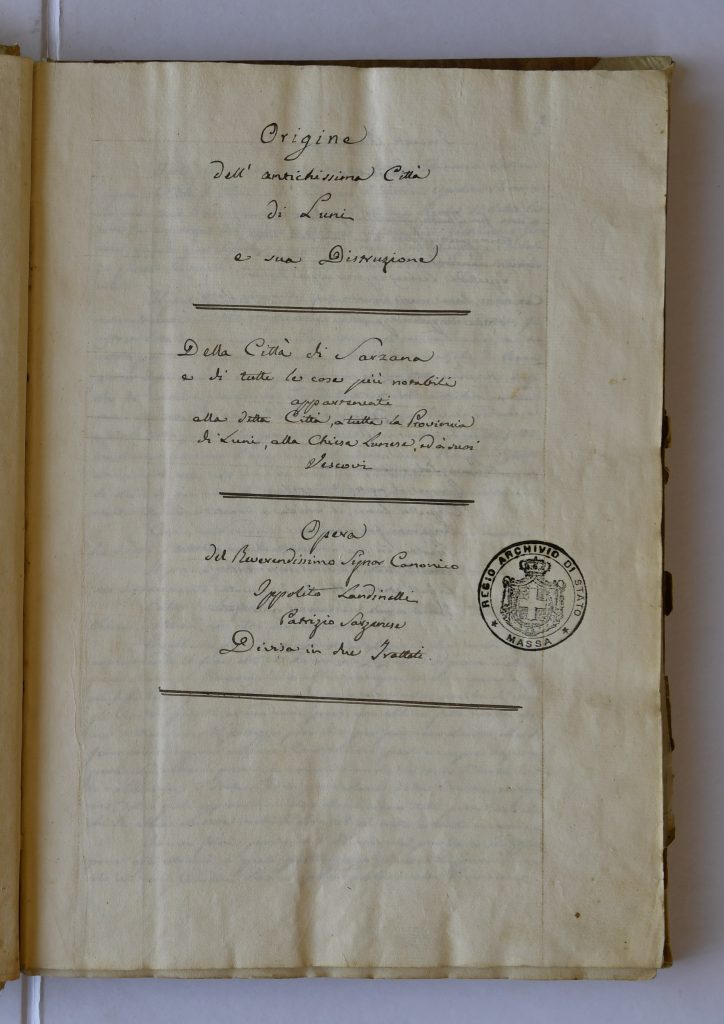 Origine
dell' antichissima Città
di Luni
e sua Distruzione
Della Città di Sarzana
e di tutte le cose più notabili
appartenenti
alla detta Città, a tutta la Provincia
di Luni, alla Chiesa Lunese, ed à suoi
Vescovi
Opera
del Reverendissimo Signor Canonico
Ippolito Landinelli
Patrizio Sarzanese
Divisa in due Trattati.
REGIO ARCHIVIO DI STATO
MASSA